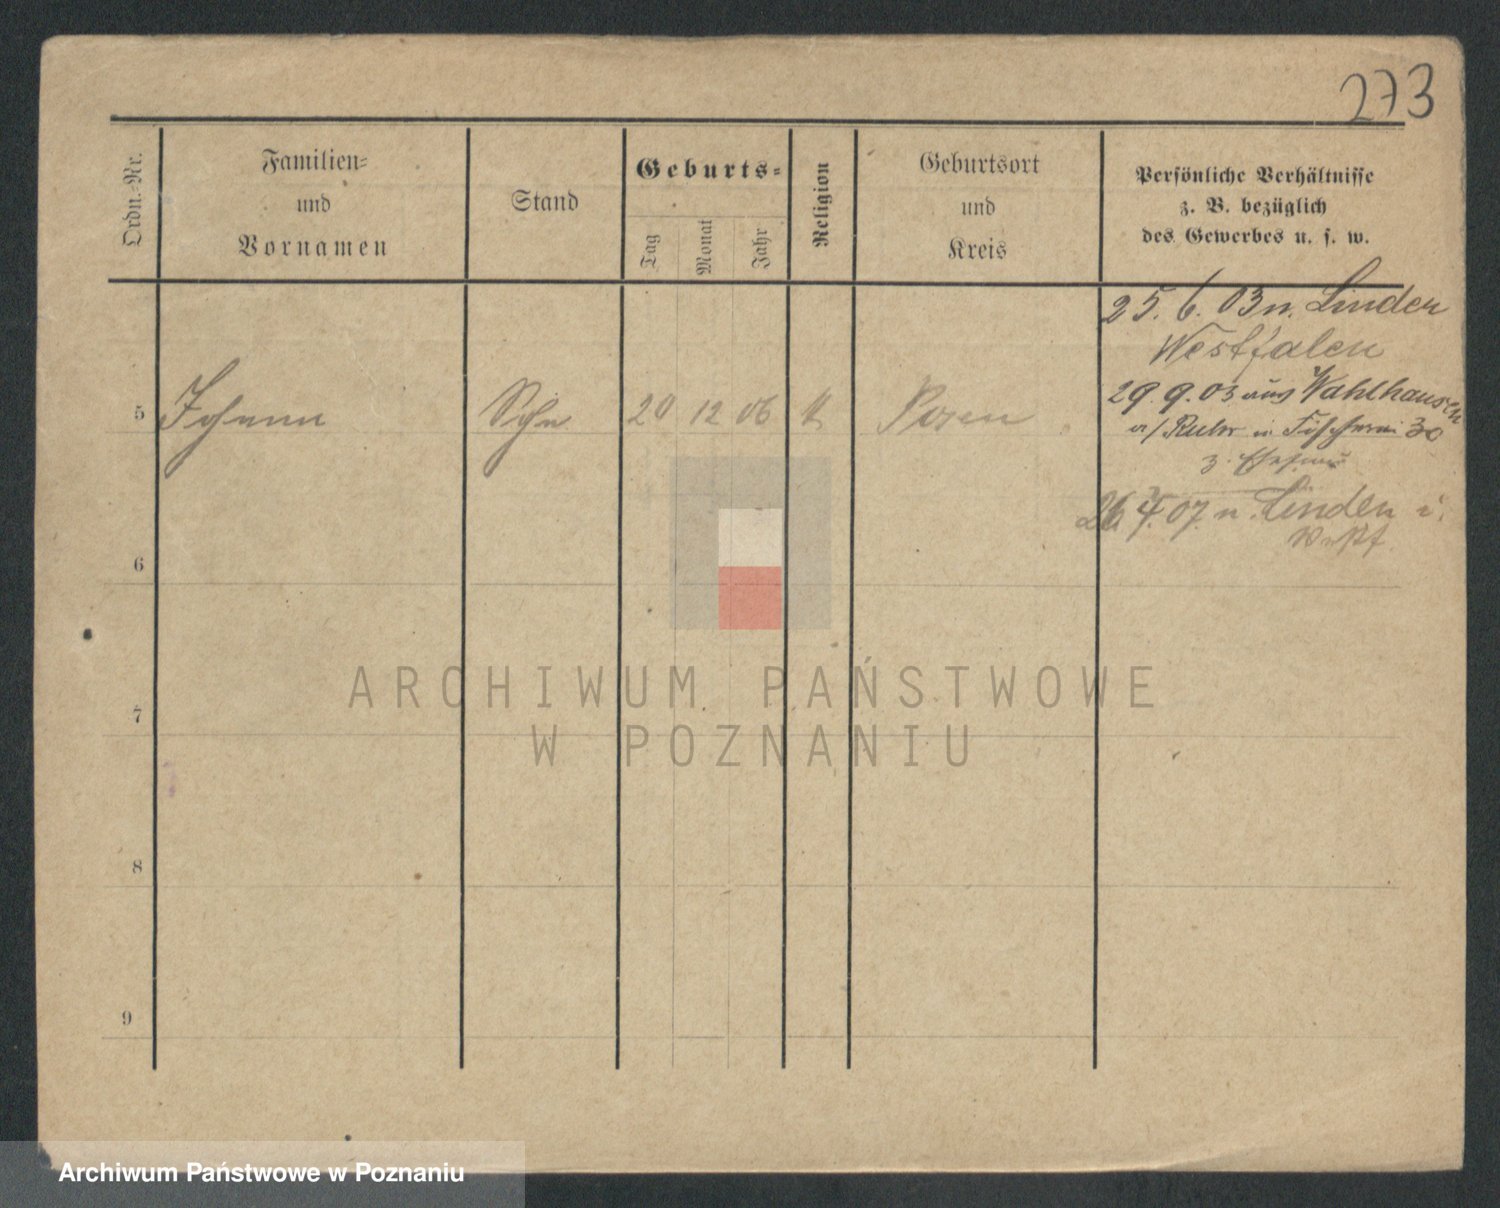 273
Ordn.-Nr.
Familien-
und
Vornamen
Stand
Geburts-
Tag
Monat
Jahr
Religion
Geburtsort
und
Kreis
Persönliche Verhältnisse
z. B. bezüglich
des Gewerbes u. s. w.
25. 6. 03 n. Linden
Westfalen
29. 9. 03 aus Wahlhausen
5 Johann Sohn 20 12 06 k Posen
a/Ruhr in Fischerei 30
z. Ehefrau
26. 4. 07. n. Linden i.
Westf.
6
7
8
9
ARCHIWUM PAŃSTWOWE
W POZNANIU
Archiwum Państwowe w Poznaniu